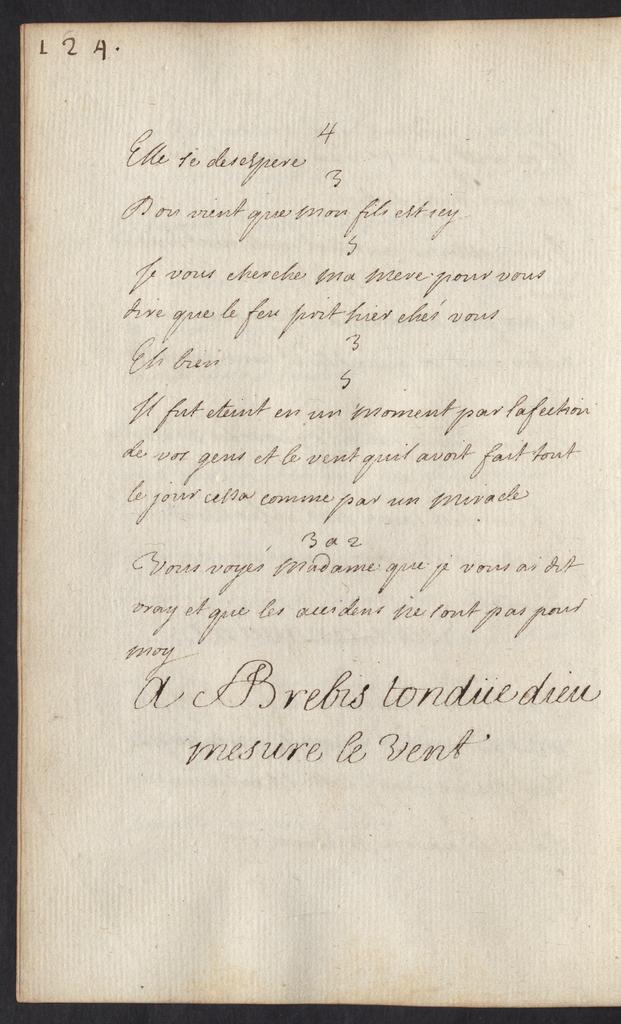 124.
4
Elle se desespere
3
Dou vient que mon fils est icy
5
Je vous cherche ma mere pour vous
dire que le feu prit hier chés vous
3
Eh bien
5
Il fut eteint en un moment par lafection
de vos gens et le vent quil avoit fait tout
le jour cessa comme par un miracle
3 a 2
Vous voyés Madame que je vous ai dit
vray et que les accidens ne sont pas pour
moy
A Brebis tondüe dieu
mesure le vent